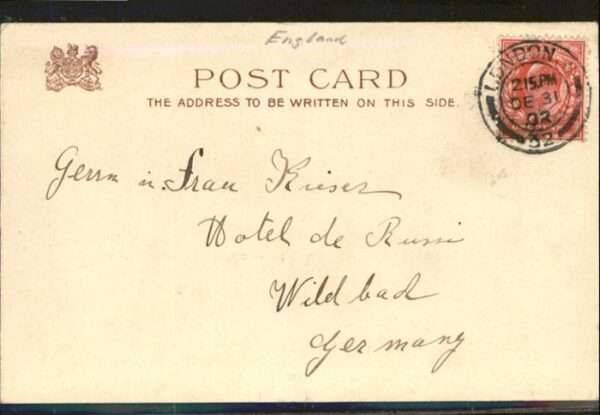 England
POST CARD
THE ADDRESS TO BE WRITTEN ON THIS SIDE.
LONDON
2.15.PM
DE 31
03
52
Herrn u. Frau Kieser
Hotel de Russi
Wildbad
Germany